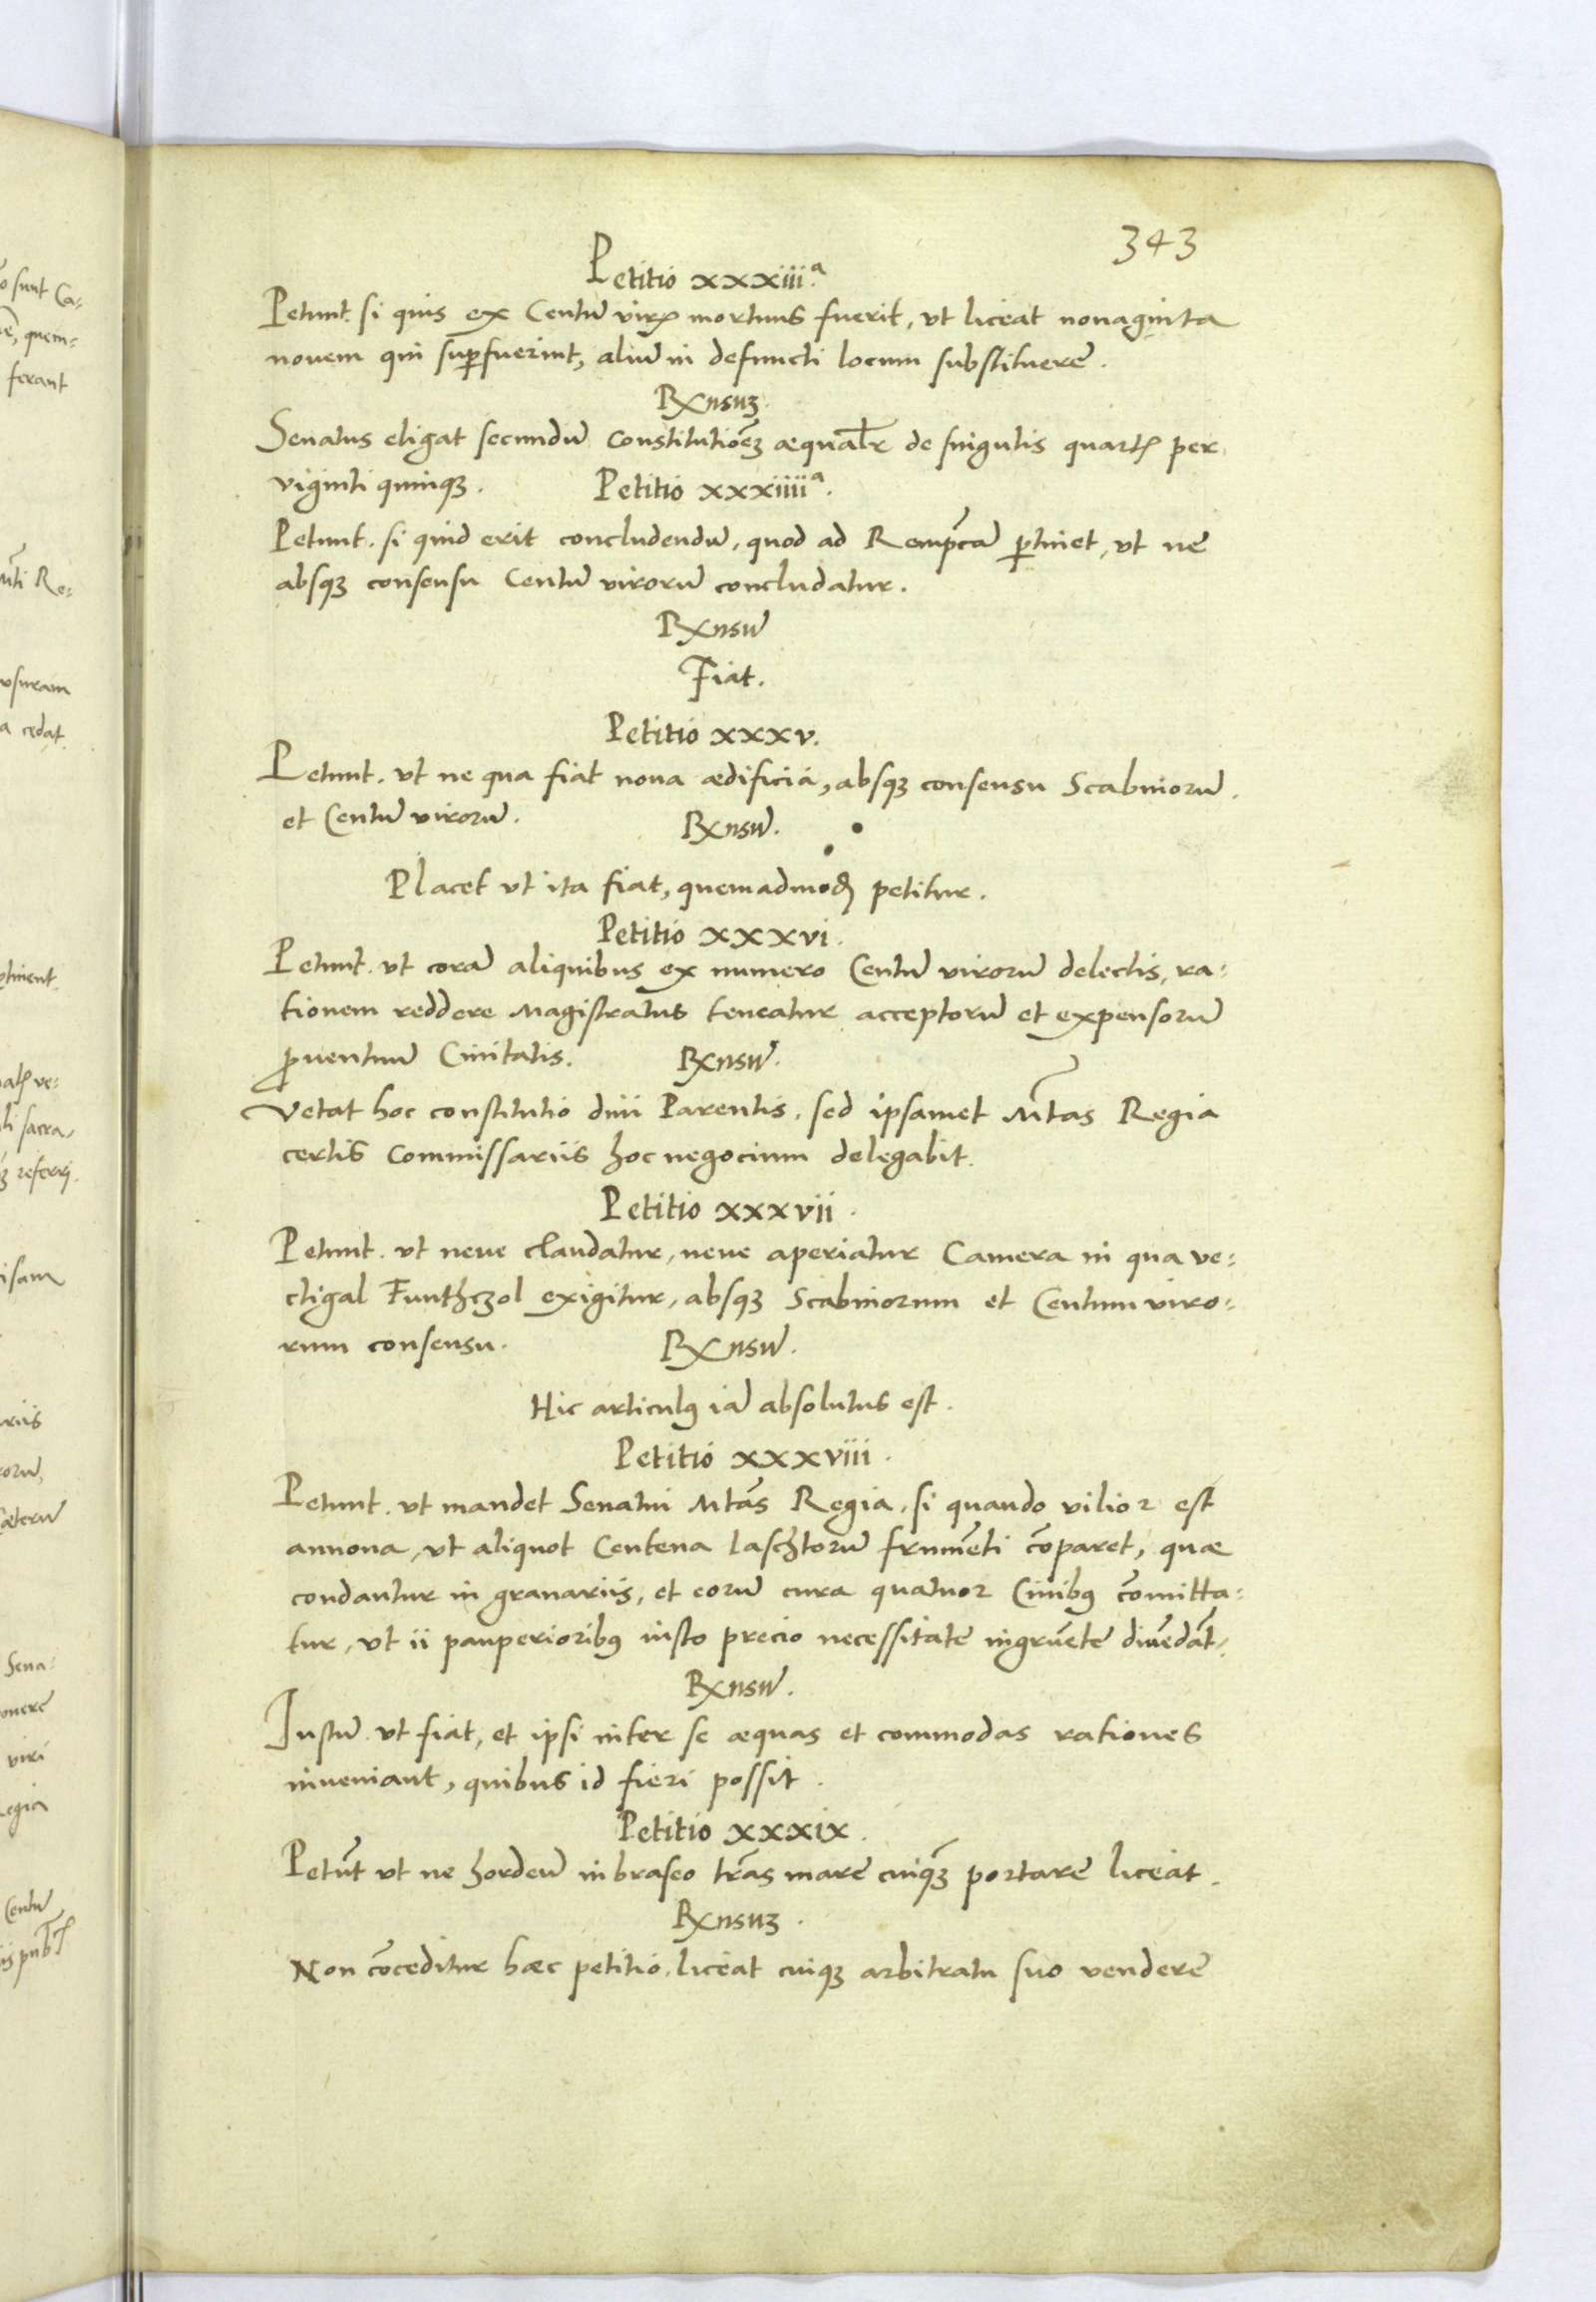 343
Petitio xxxiii.ª
Petunt. si quis ex Centũ virꝝ mortuus fuerit, vt liceat nonaginta
nouem qui suꝑfuerint, aliũ in defuncti locum substituere.
Rx̄nsuꝫ.
Senatus eligat secundũ constitutiõeꝫ æqualr̃ de singulis quartꝭ per
viginti quinqꝫ. Petitio xxxiiiiª.
Petunt. si quid erit concludendũ, quod ad Remp̃cã ꝑtinet, vt ne
absqꝫ consensu Centũ virorũ concludatur.
Rx̄nsũ
Fiat.
Petitio xxxv.
Petunt. vt ne qua fiat noua ædificia, absqꝫ consensu Scabinorũ.
et Centũ virorũ. Rx̄nsũ.
Placet vt ita fiat, quemadmodꝭ petitur.
Petitio xxxvi.
Petunt. vt corã aliquibus ex numero Centũ virorũ delectis, ra:
tionem reddere Magistratus teneatur acceptorũ et expensorũ
ꝓuentuũ Ciuitatis. Rx̄nsũ.
Vetat hoc constitutio diui Parentis. sed ipsamet M̃tas Regia
certis Commissariis hoc negocium delegabit.
Petitio xxxvii.
Petunt. vt neue claudatur, neue aperiatur Camera in qua ve:
ctigal Funthczol exigitur, absqꝫ Scabinorum et Centum viro:
rum consensu. Rx̄nsũ.
Hic articulꝰ iã absolutus est.
Petitio xxxviii.
Petunt. vt mandet Senatui Mtãs Regia, si quando vilior est
annona, vt aliquot Centena laschtorũ frumẽti cõparet, quæ
condantur in granariis, et eorũ cura quatuor Ciuibꝰ cõmitta:
tur, vt ii pauperioribꝰ iusto precio necessitate ingruẽte diuẽdãt.
Rx̄nsũ.
Iustũ vt fiat, et ipsi inter se æquas et commodas rationes
inueniant, quibus id fieri possit.
Petitio xxxix.
Petũt vt ne hordeũ in braseo trãs mare cuiqꝫ portare liceat.
Rx̄nsuꝫ.
Non cõceditur hæc petitio. liceat cuiqꝫ arbitratu suo vendere